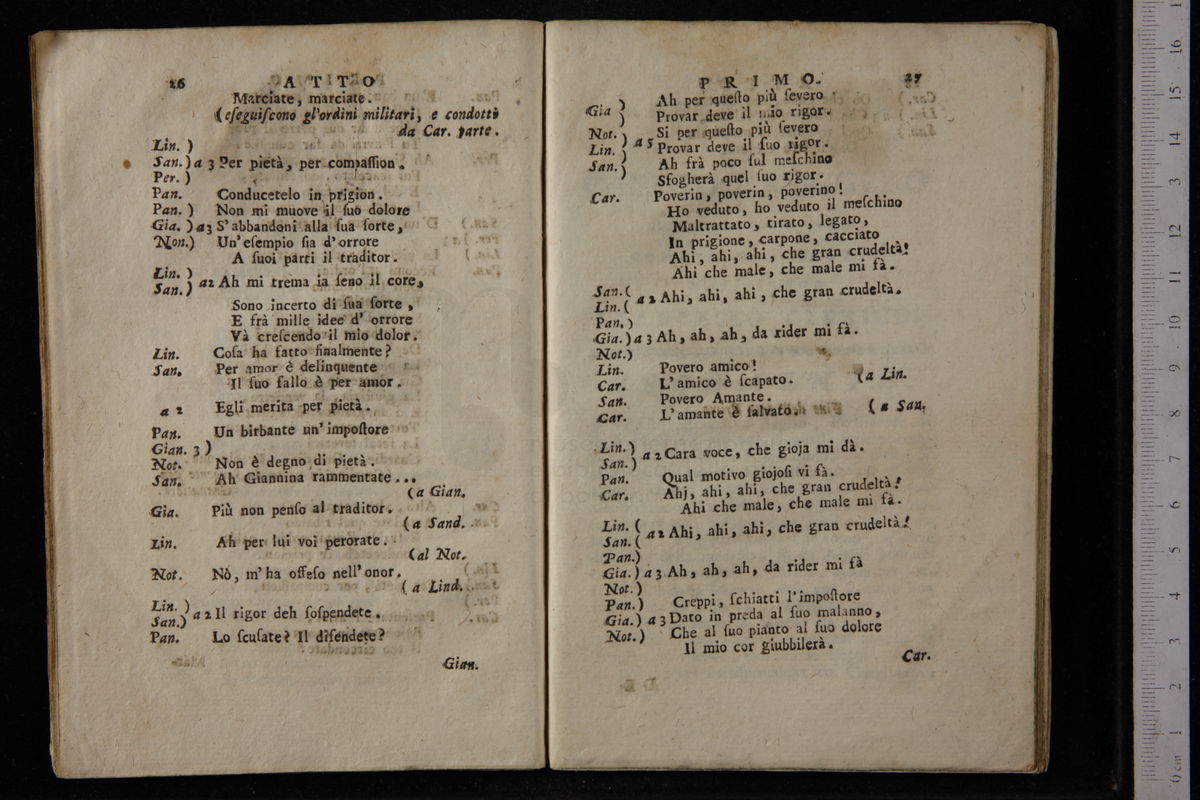 26 ATTO
Marciate, marciate.
(eſeguiſcono gl'ordini militari, e condotto
da Car. parte.
Lin. )
San. ) a 3 Per pietà, per compaſſion.
Per. )
Pan. Conducetelo in prigion.
Pan. ) Non mi muove il ſuo dolore
Gia. ) a3 S'abbandoni alla ſua ſorte,
Non.) Un'eſempio ſia d'orrore
A ſuoi parti il traditor.
Lin. )
San. ) a2 Ah mi trema ia ſeno il core,
Sono incerto di ſua ſorte,
E frà mille idee d' orrore
Và creſcendo il mio dolor.
Lin. Coſa ha fatto finalmente?
San. Per amor è delinquente
Il ſuo fallo è per amor.
a 2 Egli merita per pietà.
Pan. Un birbante un'impoſtore
Gian. 3 )
Not. Non è degno di pietà.
San. Ah Giannina rammentate...
(a Gian.
Gia. Più non penſo al traditor.
(a Sand.
Lin. Ah per lui voi perorate.
(al Not.
Not. Nò, m'ha offeſo nell'onor.
(a Lind.
Lin. )
San.) a2 Il rigor deh ſoſpendete.
Pan. Lo ſcuſate? Il difendete?
Gian.
PRIMO. 27
Gia ) Ah per queſto più ſevero
Provar deve il mio rigor.
Not. ) Si per queſto più ſevero
Lin. ) a 5 Provar deve il ſuo rigor.
San. ) Ah frà poco ſul meſchino
Sfogherà quel ſuo rigor.
Car. Poverin, poverin, poverino!
Ho veduto, ho veduto il meſchino
Maltrattato, tirato, legato,
In prigione, carpone, cacciato
Ahi, ahi, ahi, che gran crudeltà!
Ahi che male, che male mi fà.
San. (
Lin. ( a 2 Ahi, ahi, ahi, che gran crudeltà.
Pan. )
Gia. ) a 3 Ah, ah, ah, da rider mi fà.
Not.)
Lin. Povero amico!
Car. L'amico è ſcapato. (a Lin.
San. Povero Amante.
Car. L'amante è ſalvato. (a San.
Lin. )
San. ) a 2 Cara voce, che gioja mi dà.
Pan. Qual motivo giojoſi vi fà.
Car. Ahj, ahi, ahi, che gran crudeltà!
Ahi che male, che male mi fà.
Lin. (
San. ( a2 Ahi, ahi, ahi, che gran crudeltà!
Pan.)
Gia. ) a 3 Ah, ah, ah, da rider mi fà
Not. )
Pan.) Creppi, ſchiatti l'impoſtore
Gia. ) a 3 Dato in preda al ſuo malanno,
Not. ) Che al ſuo pianto al ſuo dolore
Il mio cor giubbilerà.
Car.
0 cm 1 2 3 4 5 6 7 8 9 10 11 12 13 14 15 16